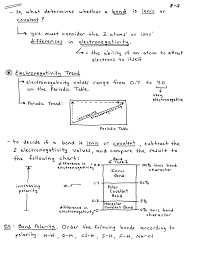 8-3
- So, what determines whether a bond is ionic or
covalent?
↳ you must consider the 2 atoms' ions'
differences in electronegativity.
↳ = the ability of an atom to attract
electrons to itself
Electronegativity Trend
→ electronegativity values range from 0.7 to 4.0
on the Periodic Table.
very
electronegative
→ Periodic Trend:
Periodic Table
- to decide if a bond is ionic or covalent, subtract the
2 electronegativity values, and compare the result to
the following chart:
difference in
electronegativity
Bond
Type?
100% ionic bond
character
Ionic
Bond
increasing
polarity
1.7
50%
Polar
Covalent
Bond
0.3
5%
Nonpolar
Covalent Bond
difference in
electronegativity
0% ionic bond
character
EX: Bond Polarity. Order the following bonds according to
polarity: H-H, O-H, Cl-H, S-H, F-H, Na-Cl